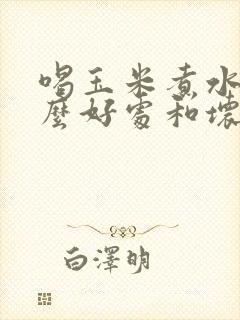 喝玉米煮水
麼好處和壞
白澤明